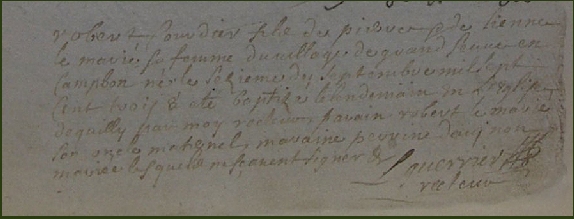 robert Jourdier fils de pierre et de tienne
le marié sa femme du village de grand en
Campbon né le Sezieme de Septembre mil Sept
cent trois & eté baptizé le lendemain en l'eglise
de quilly par moy recteur parain robert le marié
Son oncle maternel, maraine perrine
mariée lesquels ne scavent signer &
Guerrier
recteur